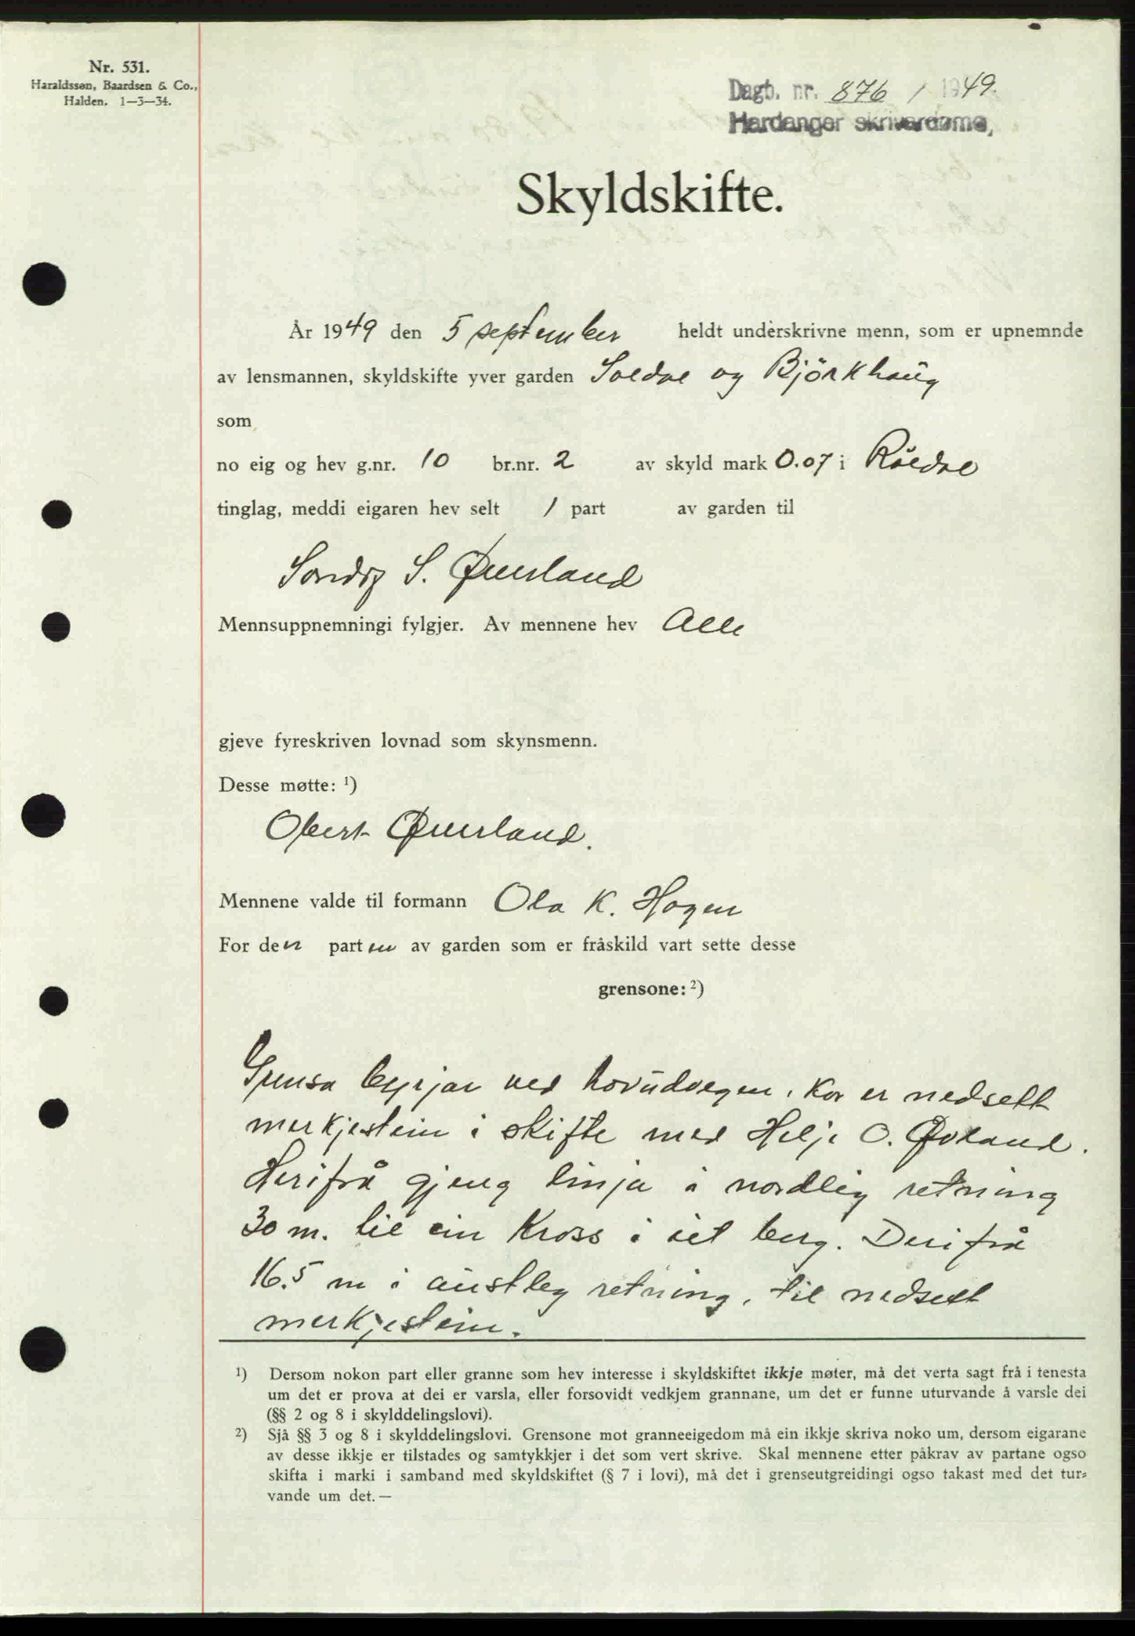 Nr. 531.
Haraldssøn, Baardsen & Co.,
Halden. 1–3–34.
Dagb. nr. 876 / 1949.
Hardanger skrivardøme,
Skyldskifte.
År 1949 den 5 september heldt underskrivne menn, som er upnemnde
av lensmannen, skyldskifte yver garden og Björkhaug
som
no eig og hev g.nr. 10 br.nr. 2 av skyld mark 0.07 i Røldal
tinglag, meddi eigaren hev selt 1 part av garden til
S. Øverland
Mennsuppnemningi fylgjer. Av mennene hev Alle
gjeve fyreskriven lovnad som skynsmenn.
Desse møtte: ¹)
Øverland.
Mennene valde til formann Ola K. Hagen
For den parten av garden som er fråskild vart sette desse
grensone: ²)
Grensa byrjar ved hovudvegen, kor er nedsett
merkjestein i skifte med Helje O.
Herifrå gjeng linja i nordleg retning
30 m. til ein kross i eit berg. Derifrå
16.5 m i austleg retning, til nedsett
merkjestein.
¹) Dersom nokon part eller granne som hev interesse i skyldskiftet ikkje møter, må det verta sagt frå i tenesta
um det er prova at dei er varsla, eller forsovidt vedkjem grannane, um det er funne uturvande å varsle dei
(§§ 2 og 8 i skylddelingslovi).
²) Sjå §§ 3 og 8 i skylddelingslovi. Grensone mot granneeigedom må ein ikkje skriva noko um, dersom eigarane
av desse ikkje er tilstades og samtykkjer i det som vert skrive. Skal mennene etter påkrav av partane ogso
skifta i marki i samband med skyldskiftet (§ 7 i lovi), må det i grenseutgreidingi ogso takast med det tur-
vande um det. —